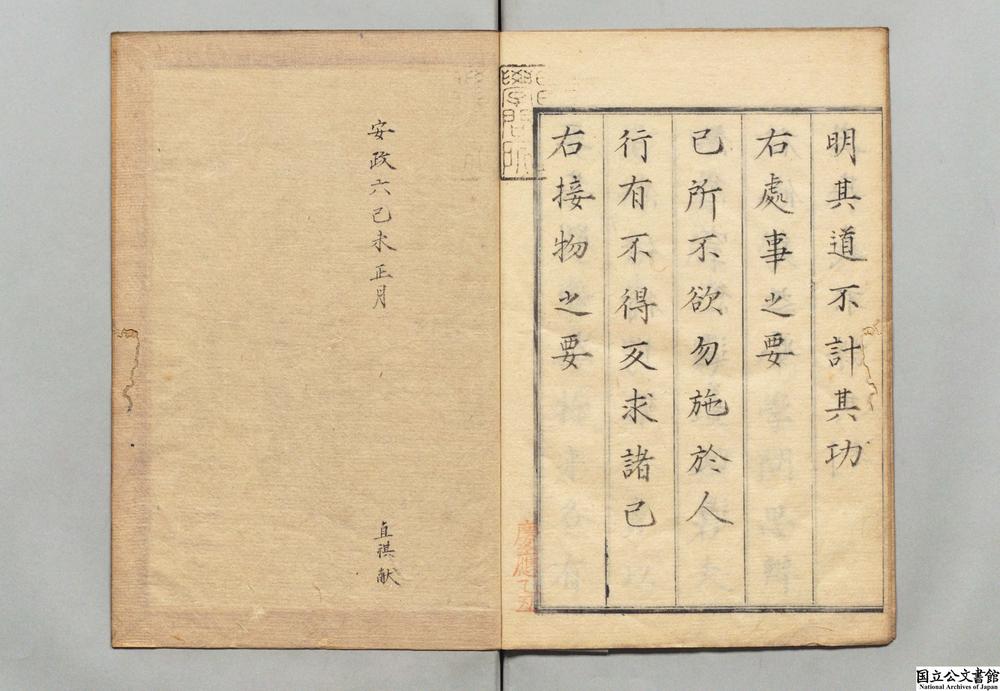 明其道不計其功
右處事之要
己所不欲勿施於人
行有不得反求諸己
右接物之要
學問所
慶應乙丑
安政六己未正月
直祺献
国立公文書館
National Archives of Japan